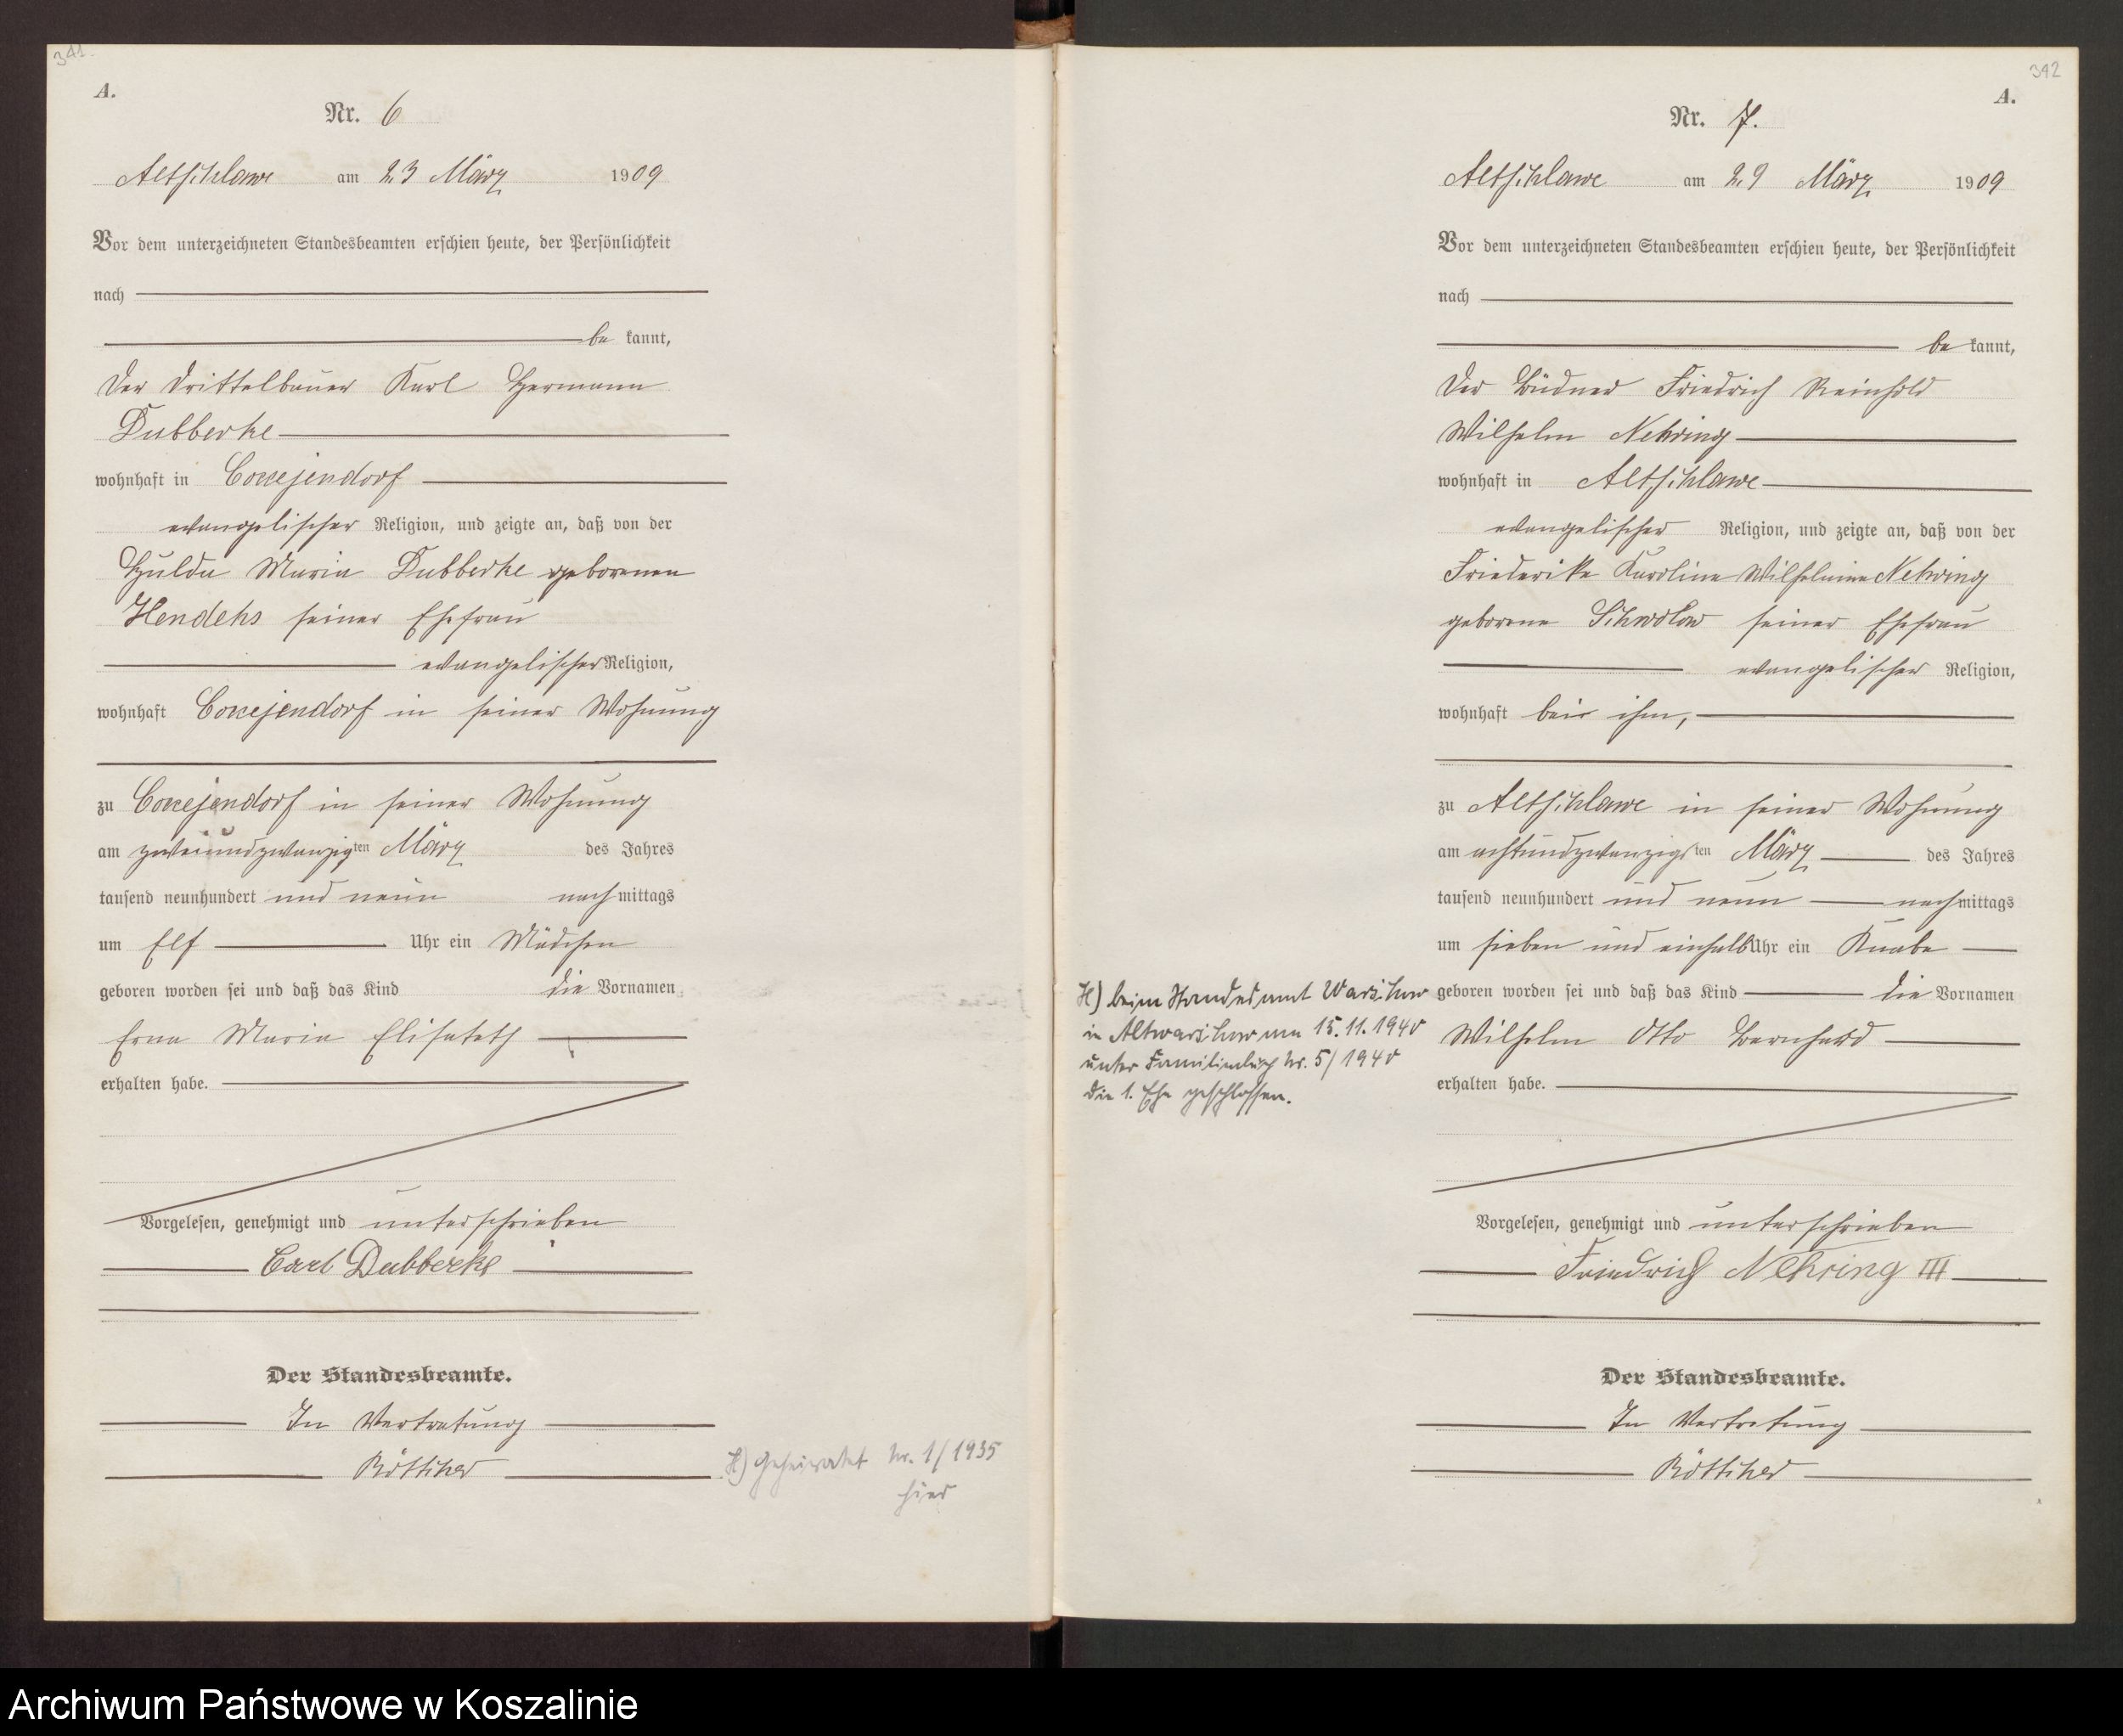 341.
A.
Nr. 6
Altschlawe am 23 März 1909
Vor dem unterzeichneten Standesbeamten erschien heute, der Persönlichkeit
nach
be kannt,
der Drittelbauer Karl Hermann
Dubberke
wohnhaft in Coccejendorf
evangelischer Religion, und zeigte an, daß von der
Hulda Maria Dubberke geborenen
seiner Ehefrau
evangelischer Religion,
wohnhaft Coccejendorf in seiner Wohnung
zu Coccejendorf in seiner Wohnung
am zweiundzwanzigten März des Jahres
tausend neunhundert und neun nachmittags
um Elf Uhr ein Mädchen
geboren worden sei und daß das Kind die Vornamen
Erna Maria Elisabeth
erhalten habe.
Vorgelesen, genehmigt und unterschrieben
Carl Dubberke
Der Standesbeamte.
In Vertretung
Röttcher
H) Geheiratet Nr. 1/1935
hier
342
A.
Nr. 7.
Altschlawe am 29 März 1909
Vor dem unterzeichneten Standesbeamten erschien heute, der Persönlichkeit
nach
be kannt,
der Büdner Friedrich Reinhold
Wilhelm Nehring
wohnhaft in Altschlawe
evangelischer Religion, und zeigte an, daß von der
Friederike Karoline Wilhelmine Nehring
geborene Schwolow seiner Ehefrau
evangelischer Religion,
wohnhaft bei ihm,
zu Altschlawe in seiner Wohnung
am achtundzwanzigsten März des Jahres
tausend neunhundert und neun nachmittags
um sieben und einhalb Uhr ein Knabe
geboren worden sei und daß das Kind die Vornamen
Wilhelm Otto Bernhard
erhalten habe.
H) beim Standesamt Warschow
in Altwarschow am 15.11.1940
unter Familienbuch Nr. 5/1940
die 1. Ehe geschlossen.
Vorgelesen, genehmigt und unterschrieben
Friedrich Nehring III
Der Standesbeamte.
In Vertretung
Röttcher
Archiwum Państwowe w Koszalinie